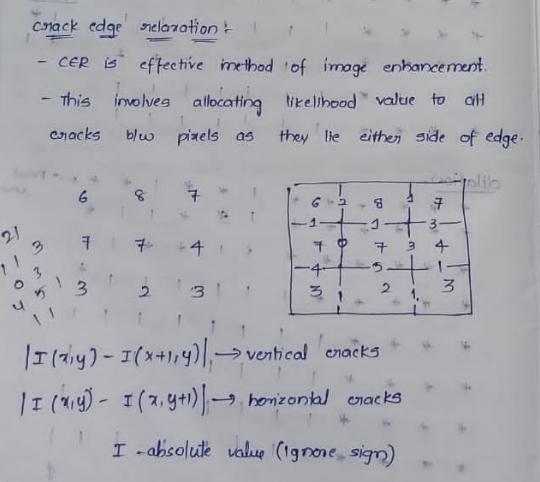 crack edge relaxation :
- CER is effective method of image enhancement.
- This involves allocating likelihood value to all
cracks b/w pixels as they lie either side of edge.
6 8 7
3 7 7 4
3 2 3
6 2 8 1 7
1 1 3
7 0 7 3 4
4 5 1
3 1 2 1 3
|I(x,y) - I(x+1,y)| → vertical cracks
|I(x,y) - I(x,y+1)| → horizontal cracks
I - absolute value (ignore sign)